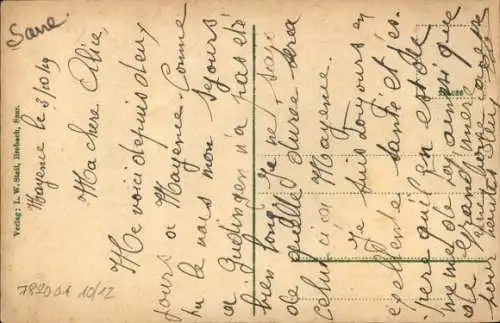 Sarre
Mayence le 3/10/19
Ma chère Alice
Me voici depuis deux
jours a Mayence. Comme
tu le vois mon séjours
a Güdingen n'a pas été
bien long. Je ne sais
de quelle durée sera
celui ci a Mayence.
Je suis toujours en
exellente santé et es-
père qu'il en est de
meme de toi ainsi que
de
Verlag: L. W. Stell, Brebach, Saar.
782001 10/12